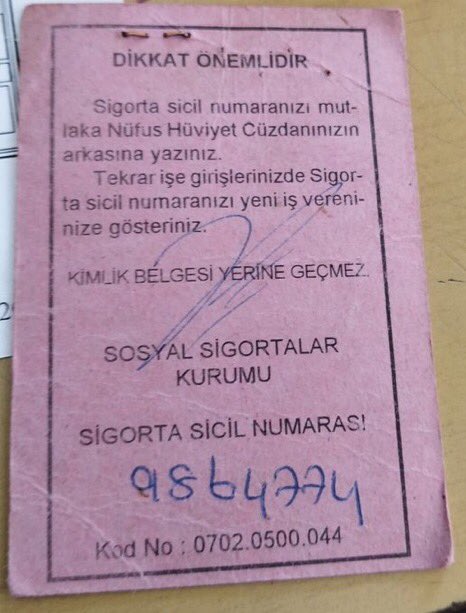 DİKKAT ÖNEMLİDİR
Sigorta sicil numaranızı mut-
laka Nüfus Hüviyet Cüzdanınızın
arkasına yazınız.
Tekrar işe girişlerinizde Sigor-
ta sicil numaranızı yeni iş vereni-
nize gösteriniz.
KİMLİK BELGESİ YERİNE GEÇMEZ.
SOSYAL SİGORTALAR
KURUMU
SİGORTA SİCİL NUMARASI
9864774
Kod No : 0702.0500.044